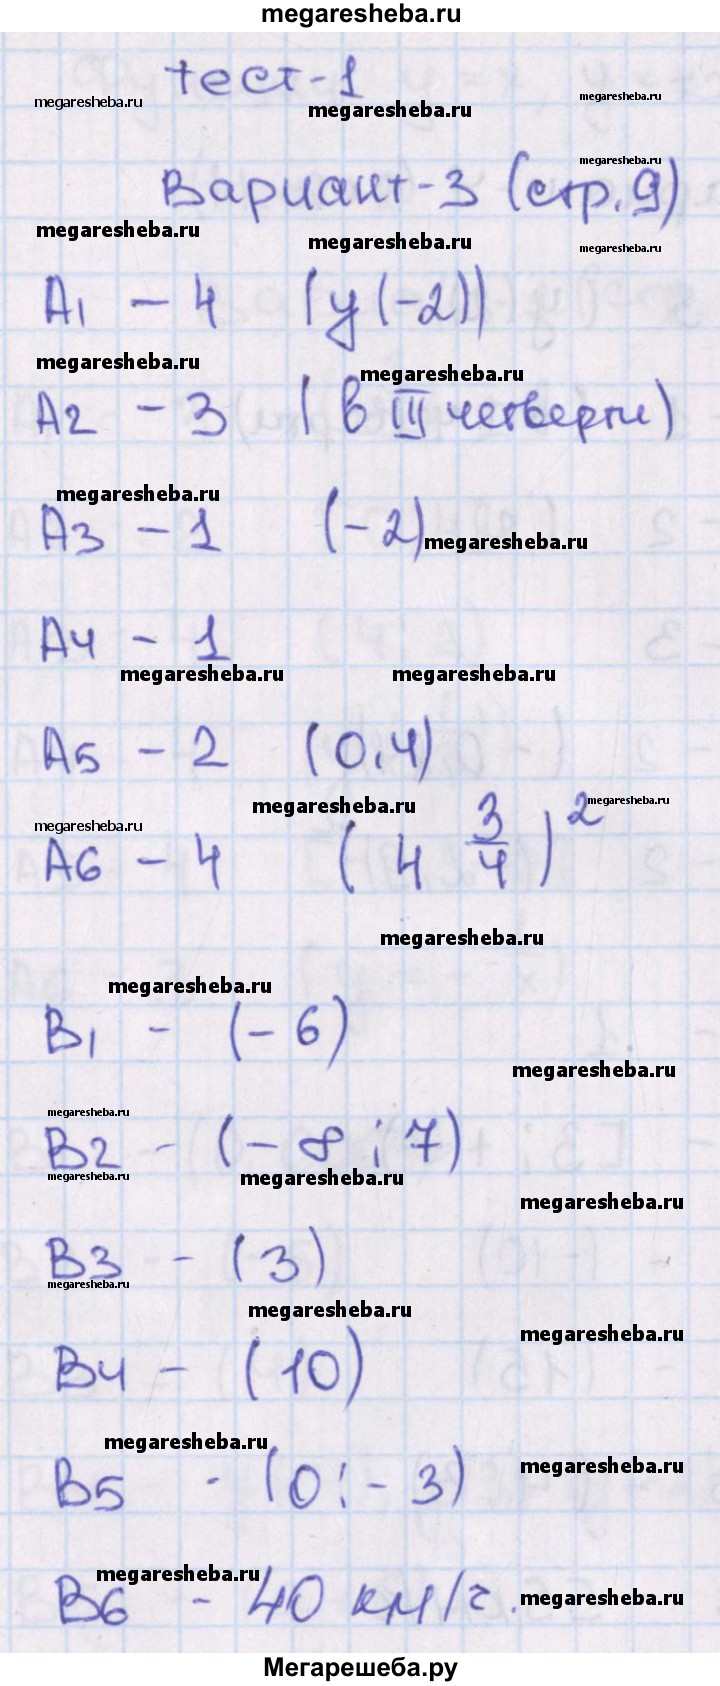 megaresheba.ru
тест-1
megaresheba.ru megaresheba.ru megaresheba.ru
megaresheba.ru
Вариант-3 (стр.9)
megaresheba.ru megaresheba.ru megaresheba.ru
А1 – 4 (у(-2))
megaresheba.ru megaresheba.ru
А2 – 3 (в III четверти)
megaresheba.ru
А3 – 1 (-2)
megaresheba.ru
А4 – 1
megaresheba.ru megaresheba.ru
А5 – 2 (0,4)
megaresheba.ru megaresheba.ru megaresheba.ru
А6 – 4 (4 3/4)²
megaresheba.ru
megaresheba.ru
В1 – (-6)
megaresheba.ru
megaresheba.ru
В2 – (-8;7)
megaresheba.ru megaresheba.ru
megaresheba.ru
В3 – (3)
megaresheba.ru
megaresheba.ru
megaresheba.ru
В4 – (10)
megaresheba.ru
megaresheba.ru
В5 - (0;-3)
megaresheba.ru
megaresheba.ru
В6 - 40 км/ч.
Мегарешеба.ру